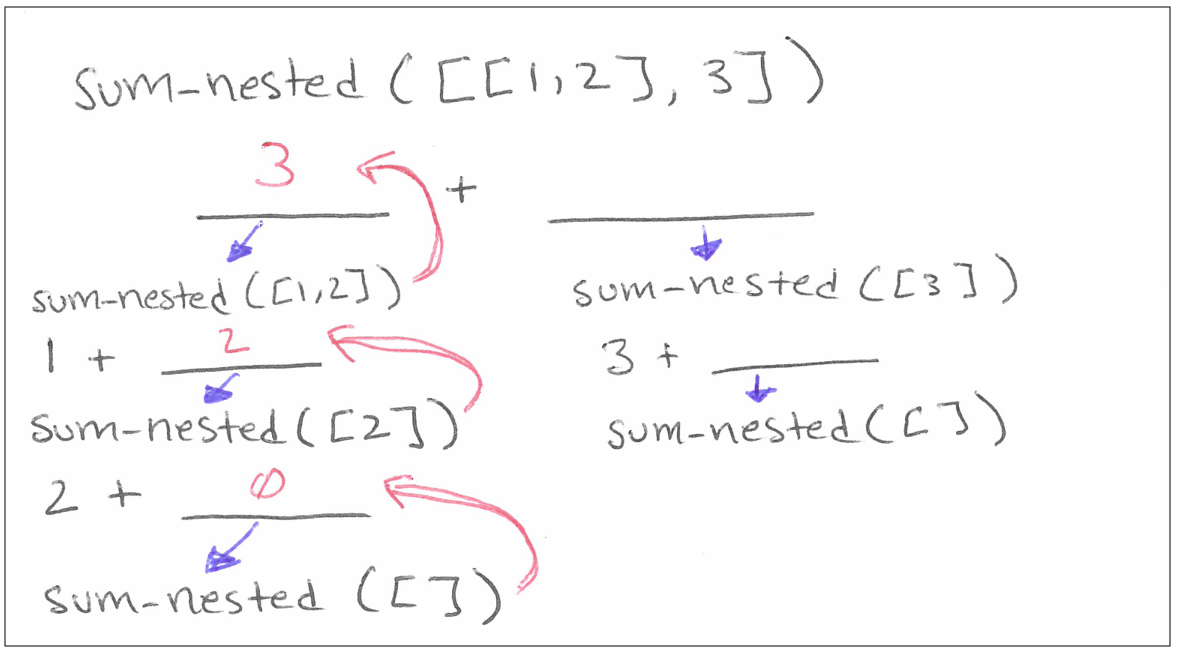 sum-nested([[1,2],3])
3 +
sum-nested([1,2])
1 + 2
sum-nested([2])
2 + 0
sum-nested([])
sum-nested([3])
3 +
sum-nested([])